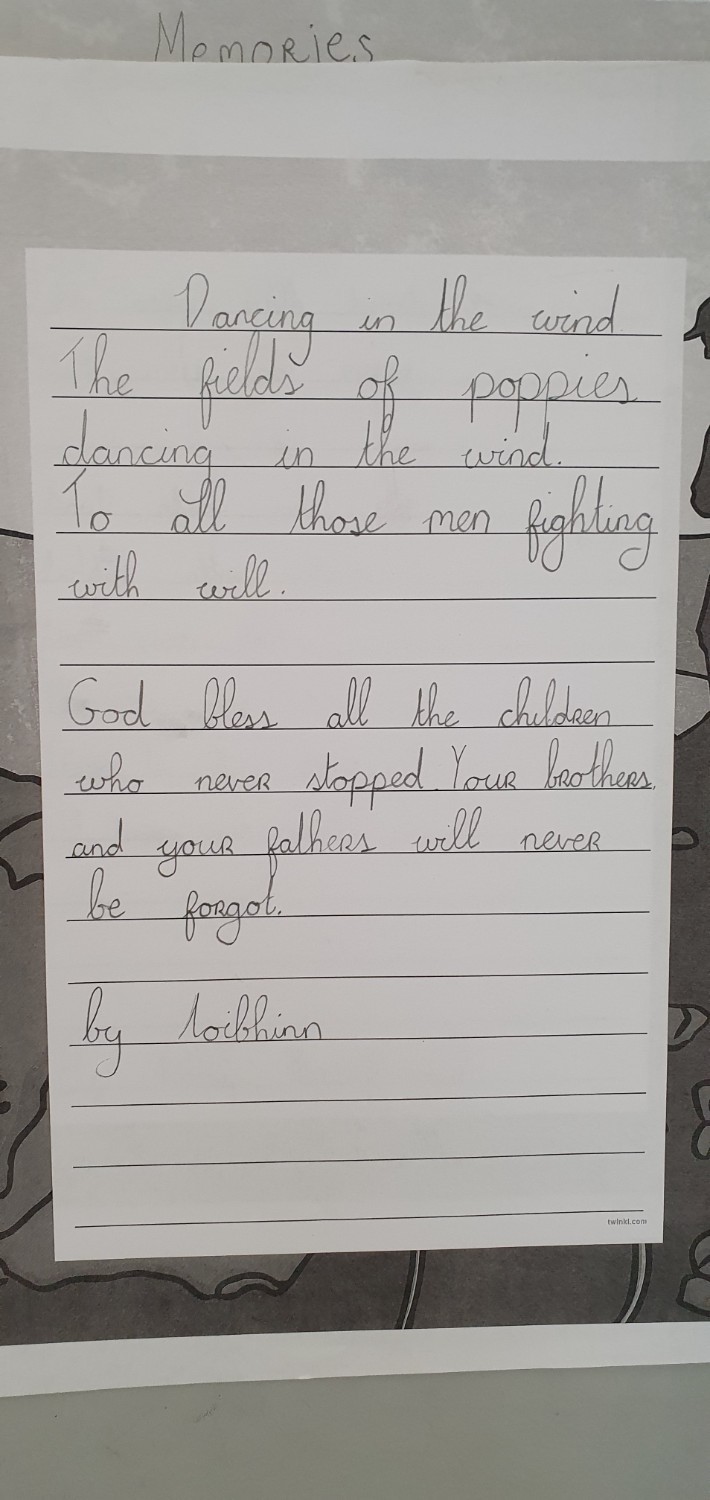 Memories
Dancing in the wind
The fields of poppies
dancing in the wind.
To all those men fighting
with will.
God bless all the children
who never stopped. Your brothers,
and your fathers will never
be forgot.
by Aoibhinn
twinkl.com